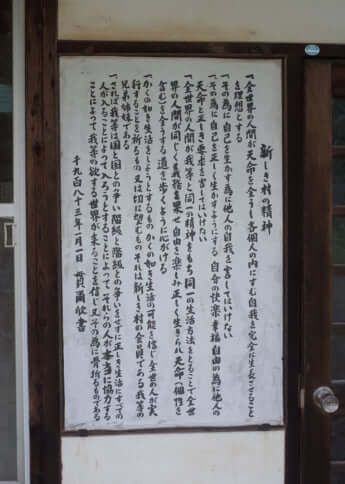 新しき村の精神
一、全世界の人間が天命を全うし各個人の内にすむ自我を完全に生長させること
を理想とする
一、その為に自己を生かす為に他人の自我を害してはいけない
一、その為に自己を正しく生かすようにする 自分の快楽 幸福 自由の為に他人の
天命と正しき要求を害してはいけない
一、全世界の人間が我等と同一の精神をもち同一の生活方法をとることで全世
界の人間が同じく義務を果せ自由を楽しみ正しく生きられ天命(個性も
含む)を全うする道を歩くように心がける
一、かくの如き生活をしようとするもの かくの如き生活の可能を信じ全世の人が実
行することを祈るもの 又は切に望むもの それは新しき村の会員である 我等の
兄弟姉妹である
一、されば我等は国と国との争い 階級と階級との争いをせずに正しき生活にすべての
人が入ることによって入ろうとすることによって、それらの人が本当に協力する
ことによって我等の欲する世界が来ることを信じ 又その為に骨折るものである
千九百八十三年一月一日